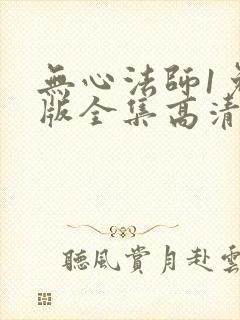 無心法師1
版全集高清
聽風賞月赴雲